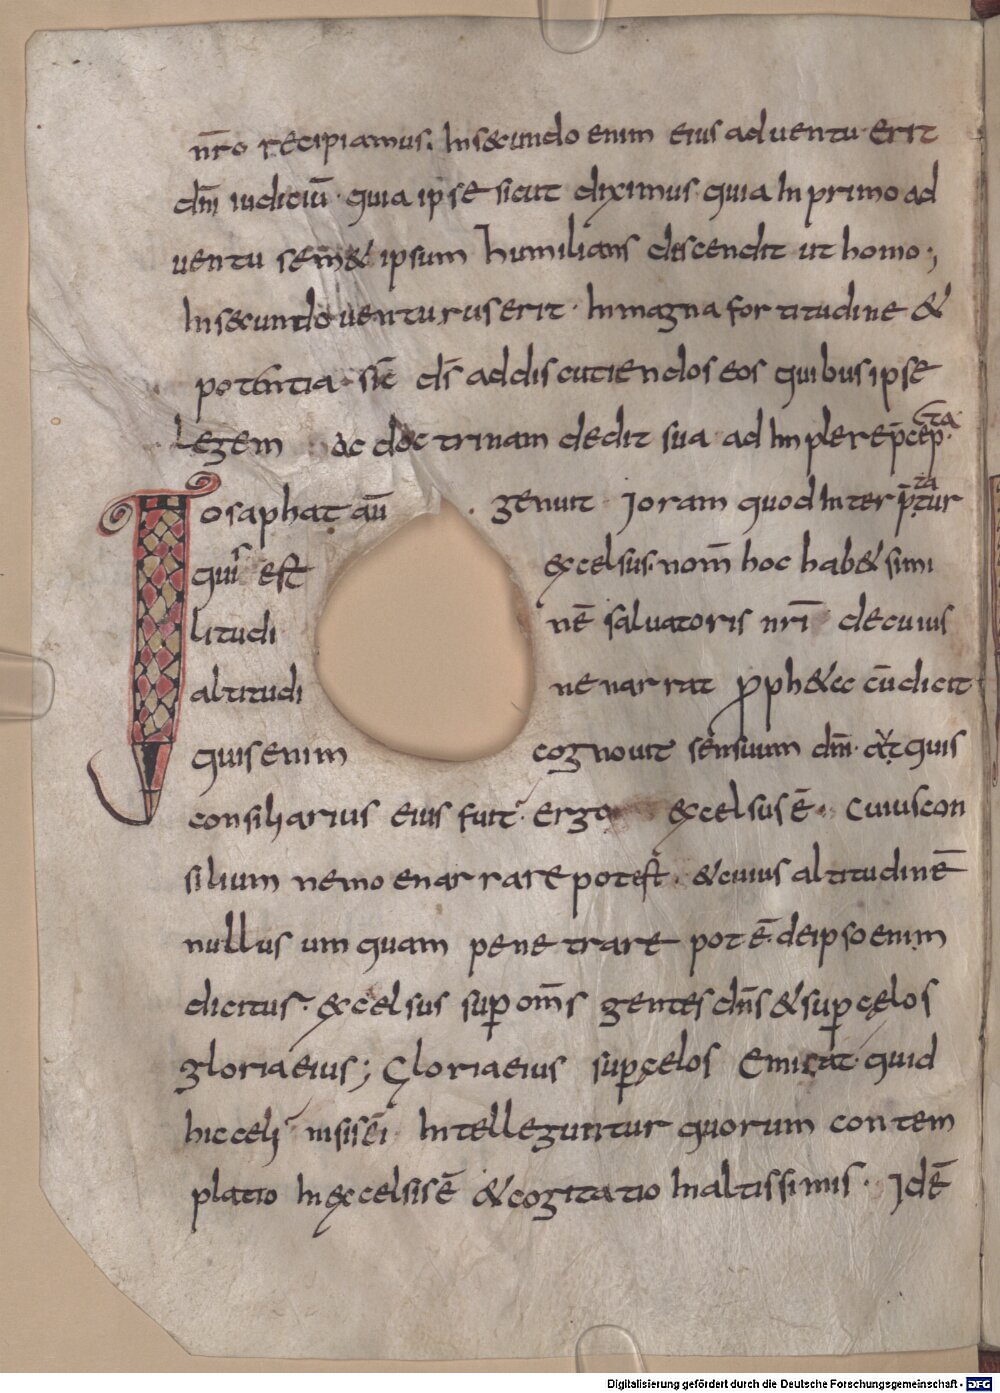 nr̅o recipiamus. In secundo enim eius aduentu erit
dn̅i iudiciu̅. quia ipse sicut diximus. quia In primo ad
uentu sem& ipsum humilians discendit ut homo;
In secundo uenturus erit. In magna fortitudine &
potentia. sic̅ ds̅ addiscutiendos eos quibus ipse
Legem ac doctrinam dedit sua ad Implere p̅cepta.
Iosaphat au̅ genuit Joram quod Interp̅tatur
qui est excelsus. nom̅ hoc hab& simi
litudi ne̅ saluatoris nr̅i de cuius
altitudi ne narrat proph&a cu̅ dicit
quis enim cognouit sensum dn̅i. aut quis
consiliarius eius fuit. Ergo excelsus e̅. Cuius con
silium nemo enarrare potest. & cuius altitudine̅
nullus umquam penetrare pot e̅. de ipso enim
dicitur. excelsus sup om̅s gentes dn̅s & sup cęlos
gloria eius; Gloria eius sup cęlos Emicat. quid
hic celi nisi sc̅i Intelleguntur quorum contem
platio In excelsis e̅ & cogitatio In altissimis. Ide̅
Digitalisierung gefördert durch die Deutsche Forschungsgemeinschaft - DFG